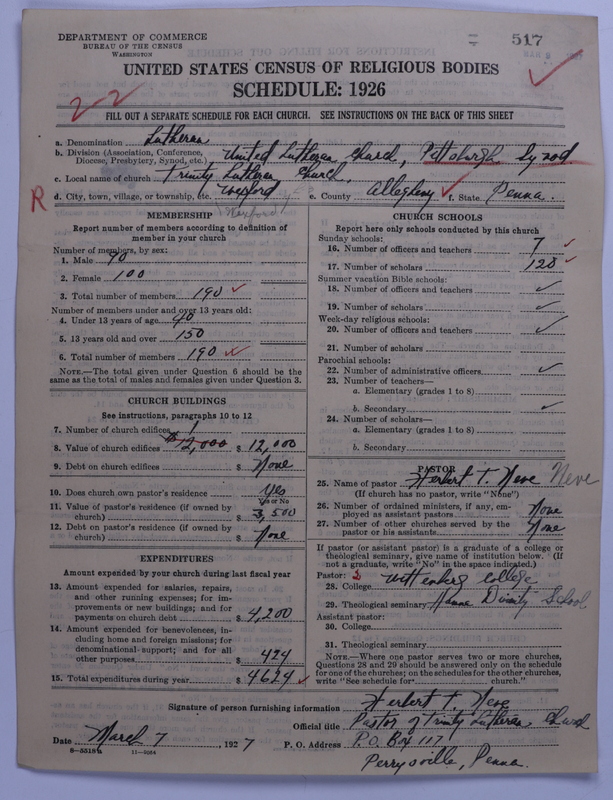 DEPARTMENT OF COMMERCE
BUREAU OF THE CENSUS
WASHINGTON
517
UNITED STATES CENSUS OF RELIGIOUS BODIES
SCHEDULE: 1926
2-2
FILL OUT A SEPARATE SCHEDULE FOR EACH CHURCH. SEE INSTRUCTIONS ON THE BACK OF THIS SHEET
a. Denomination Lutheran
b. Division (Association, Conference, Diocese, Presbytery, Synod, etc.) United Lutheran Church, Pittsburgh Synod
c. Local name of church Trinity Lutheran Church,
d. City, town, village, or township, etc. Wexford e. County Allegheny f. State Penna.
R
Wexford
MEMBERSHIP
Report number of members according to definition of
member in your church
Number of members, by sex:
1. Male 90
2. Female 100
3. Total number of members 190
Number of members under and over 13 years old:
4. Under 13 years of age 40
5. 13 years old and over 150
6. Total number of members 190
NOTE.—The total given under Question 6 should be
same as the total of males and females given under Question 3.
CHURCH BUILDINGS
See instructions, paragraphs 10 to 12
7. Number of church edifices 1
8. Value of church edifices $12,000 $ 12,000
9. Debt on church edifices $ None
10. Does church own pastor's residence Yes
Yes or No
11. Value of pastor's residence (if owned by
church) $ 3,500
12. Debt on pastor's residence (if owned by
church) $ None
EXPENDITURES
Amount expended by your church during last fiscal year
13. Amount expended for salaries, repairs,
and other running expenses; for im-
provements or new buildings; and for
payments on church debt $ 4,200
14. Amount expended for benevolences, in-
cluding home and foreign missions; for
denominational support; and for all
other purposes $ 424
15. Total expenditures during year $ 4624
CHURCH SCHOOLS
Report here only schools conducted by this church
Sunday schools:
16. Number of officers and teachers 7
17. Number of scholars 128
Summer vacation Bible schools:
18. Number of officers and teachers
19. Number of scholars
Week-day religious schools:
20. Number of officers and teachers
21. Number of scholars
Parochial schools:
22. Number of administrative officers
23. Number of teachers—
a. Elementary (grades 1 to 8)
b. Secondary
24. Number of scholars—
a. Elementary (grades 1 to 8)
b. Secondary
PASTOR
25. Name of pastor Herbert T. Neve Neve
(If church has no pastor, write "None")
26. Number of ordained ministers, if any, em-
ployed as assistant pastors None
27. Number of other churches served by the
pastor or his assistants None
If pastor (or assistant pastor) is a graduate of a college or
theological seminary, give name of institution below. (If
not a graduate, write "No" in the space indicated.)
Pastor: 2
28. College Wittenberg College
29. Theological seminary Hamma Divinity School
Assistant pastor:
30. College
31. Theological seminary
NOTE.—Where one pastor serves two or more churches,
Questions 28 and 29 should be answered only on the schedule
for one of the churches; on the schedules for the other churches,
write "See schedule for church."
Signature of person furnishing information Herbert T. Neve
Official title Pastor of Trinity Lutheran Church
Date March 7, 1927 P. O. Address P.O. Box 117
Perrysville, Penna.